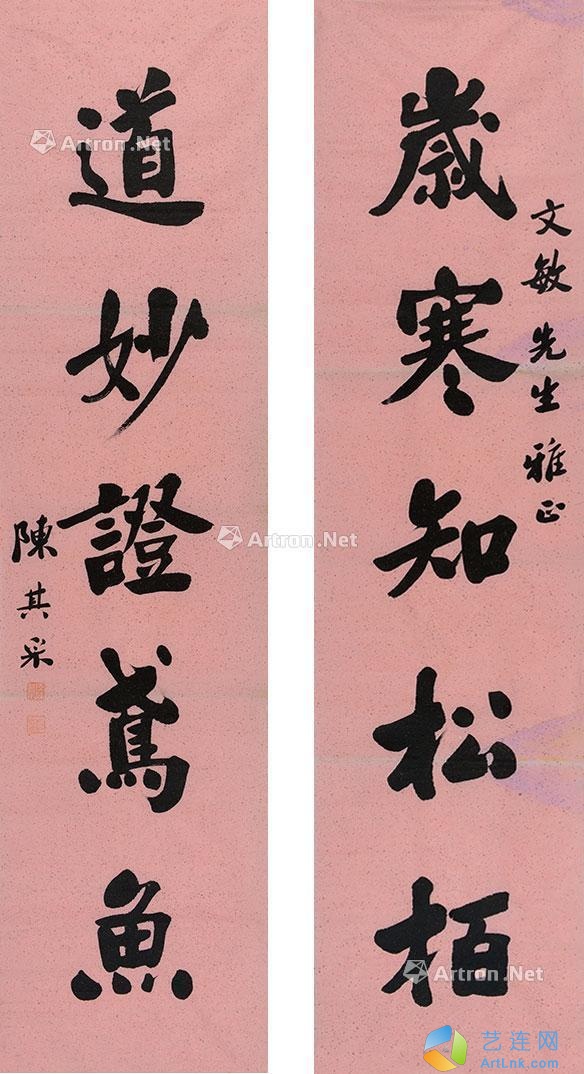 歲寒知松栢
文敏先生雅正
道妙證鳶魚
陳其采
Artron.Net
Artron.Net
Artron.Net
艺连网
ArtLnk.com